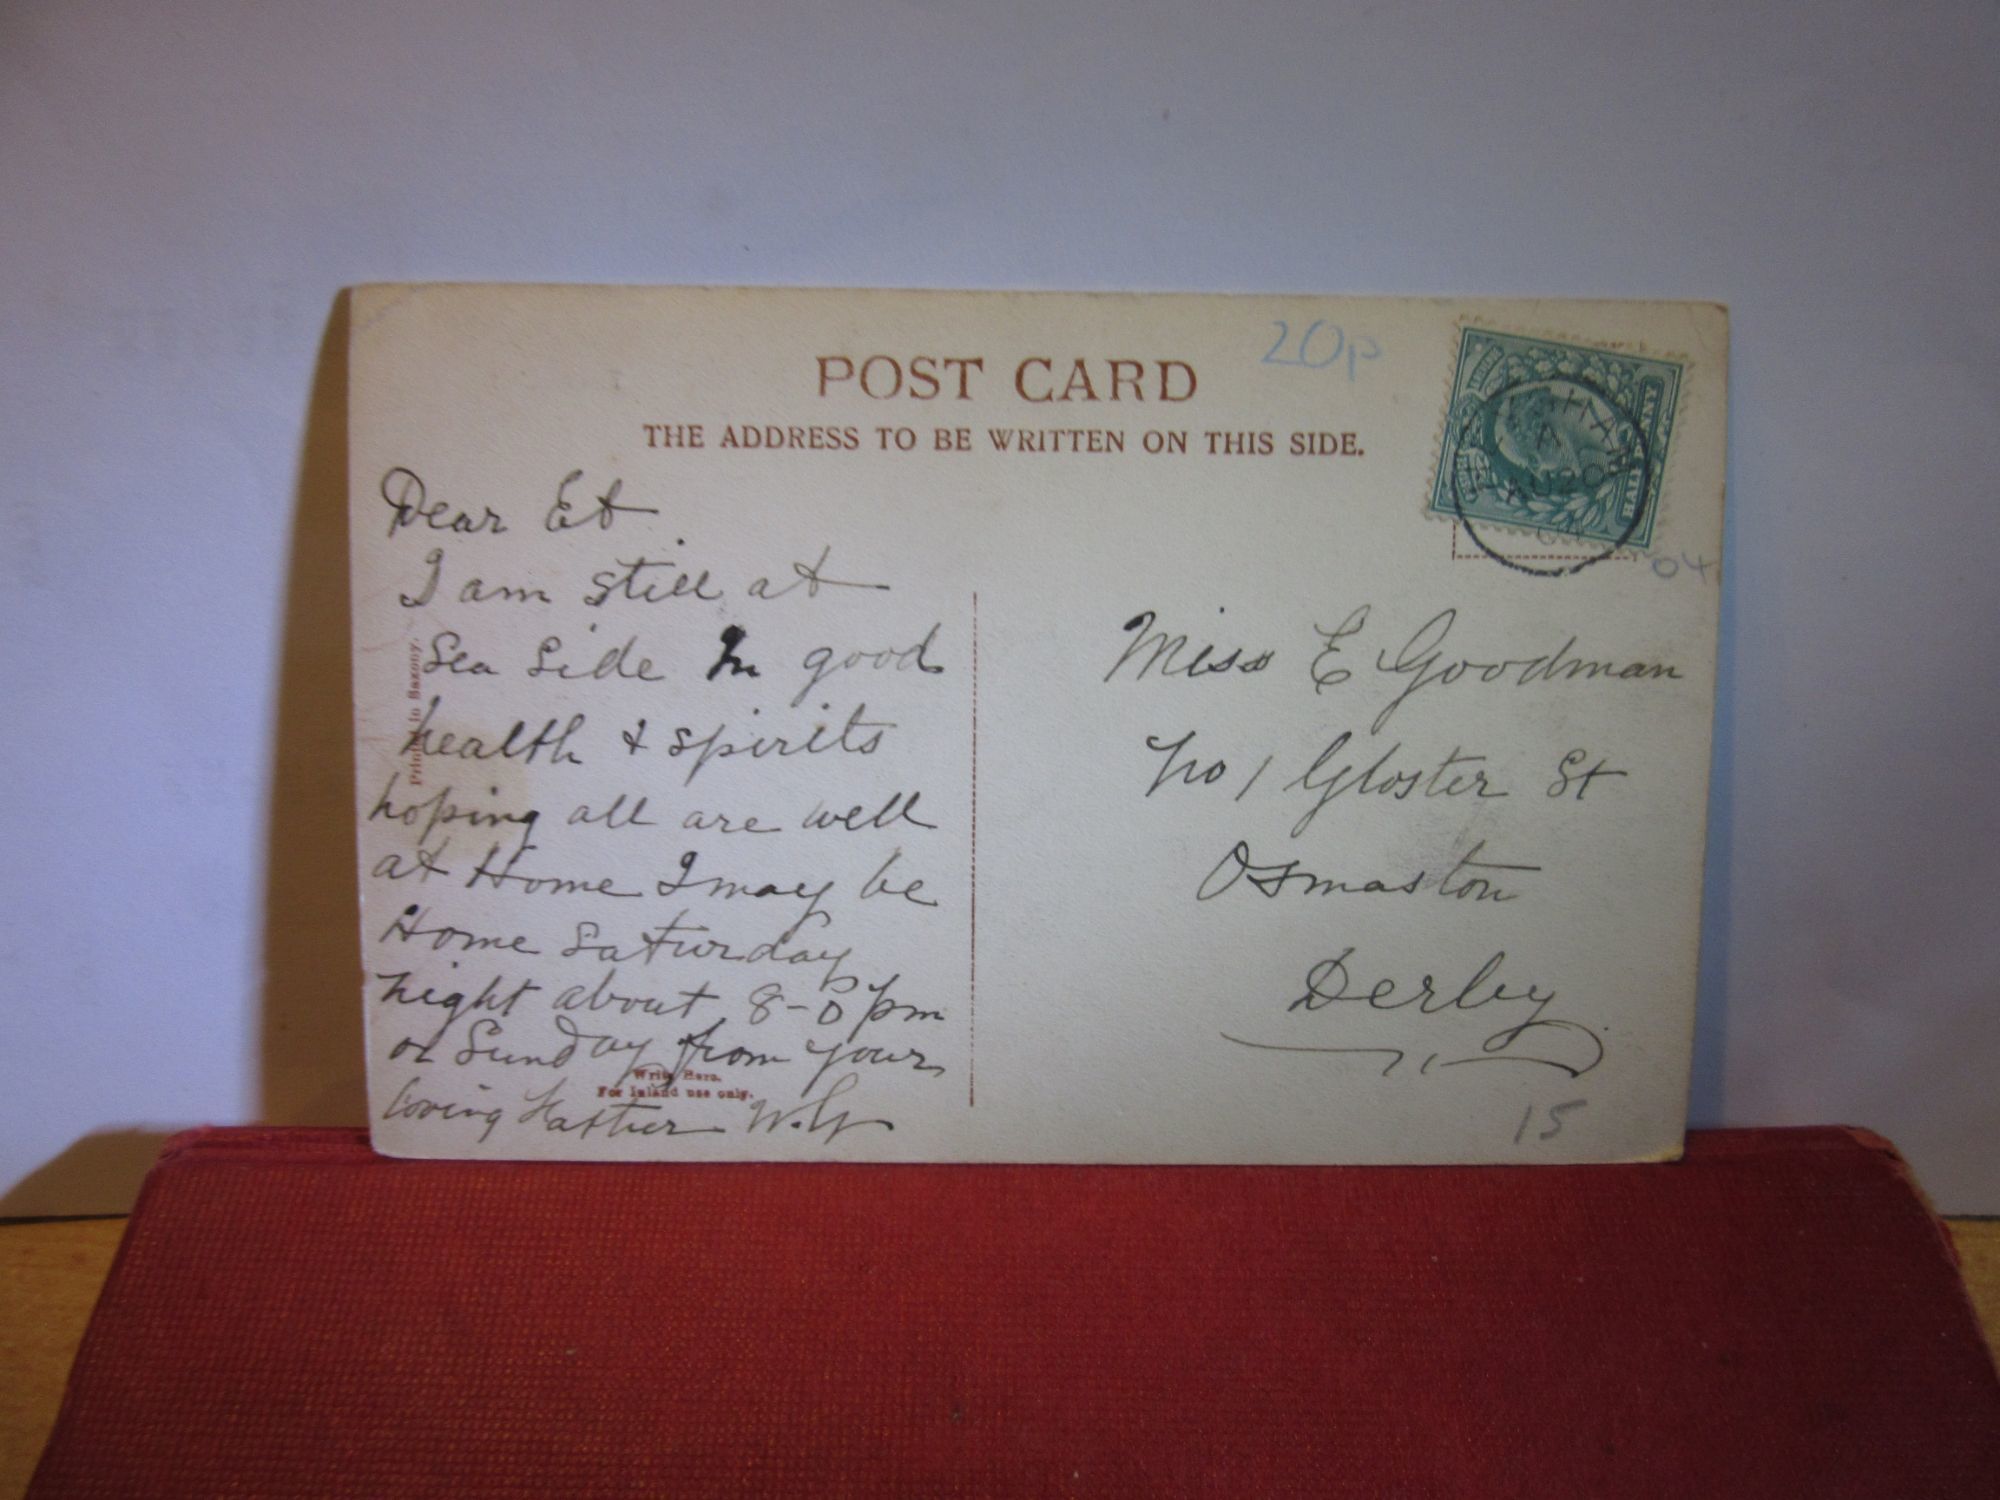 POST CARD
THE ADDRESS TO BE WRITTEN ON THIS SIDE.
20p
HALFPENNY
AU 20
04
04
Dear Et
I am still at
Sea Side In good
health & spirits
hoping all are well
at Home I may be
Home Saturday
night about 8-0 pm
or Sunday from your
loving Father W.G
Printed in Saxony.
Write Here.
For Inland use only.
Miss E Goodman
No 1 Gloster St
Osmaston
Derby
15